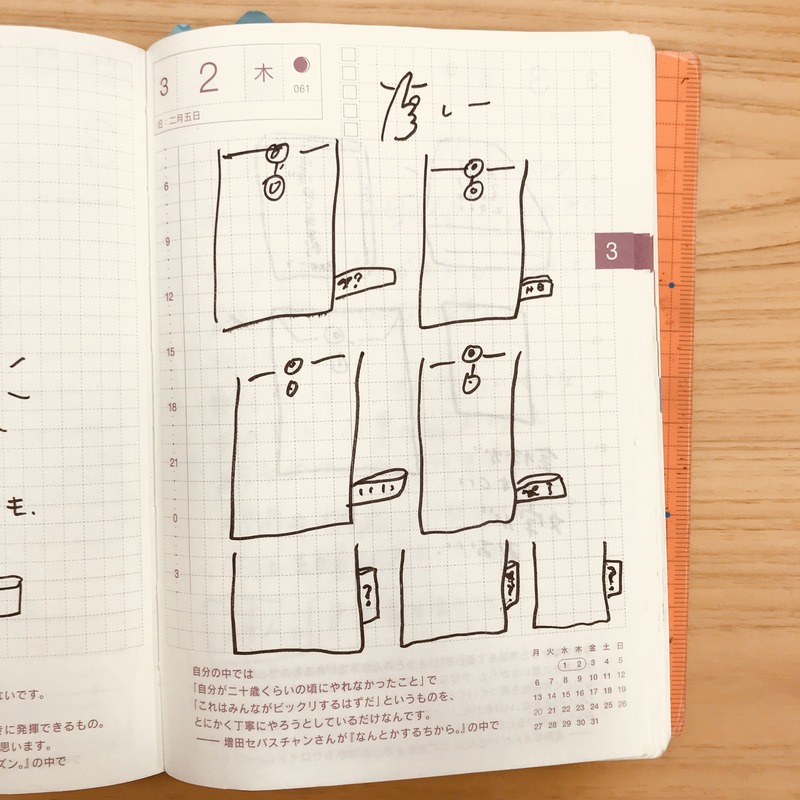 3 2 木
061
旧:二月五日
6
9
12
15
18
21
0
3
3
?
も.
自分の中では
「自分が二十歳くらいの頃にやれなかったこと」で
「これはみんながビックリするはずだ」というものを、
とにかく丁寧にやろうとしているだけなんです。
—— 増田セバスチャンさんが『なんとかするちから。』の中で
月 火 水 木 金 土 日
1 2 3 4 5
6 7 8 9 10 11 12
13 14 15 16 17 18 19
20 21 22 23 24 25 26
27 28 29 30 31
ないです。
きに発揮できるもの。
思います。
ズン。』の中で